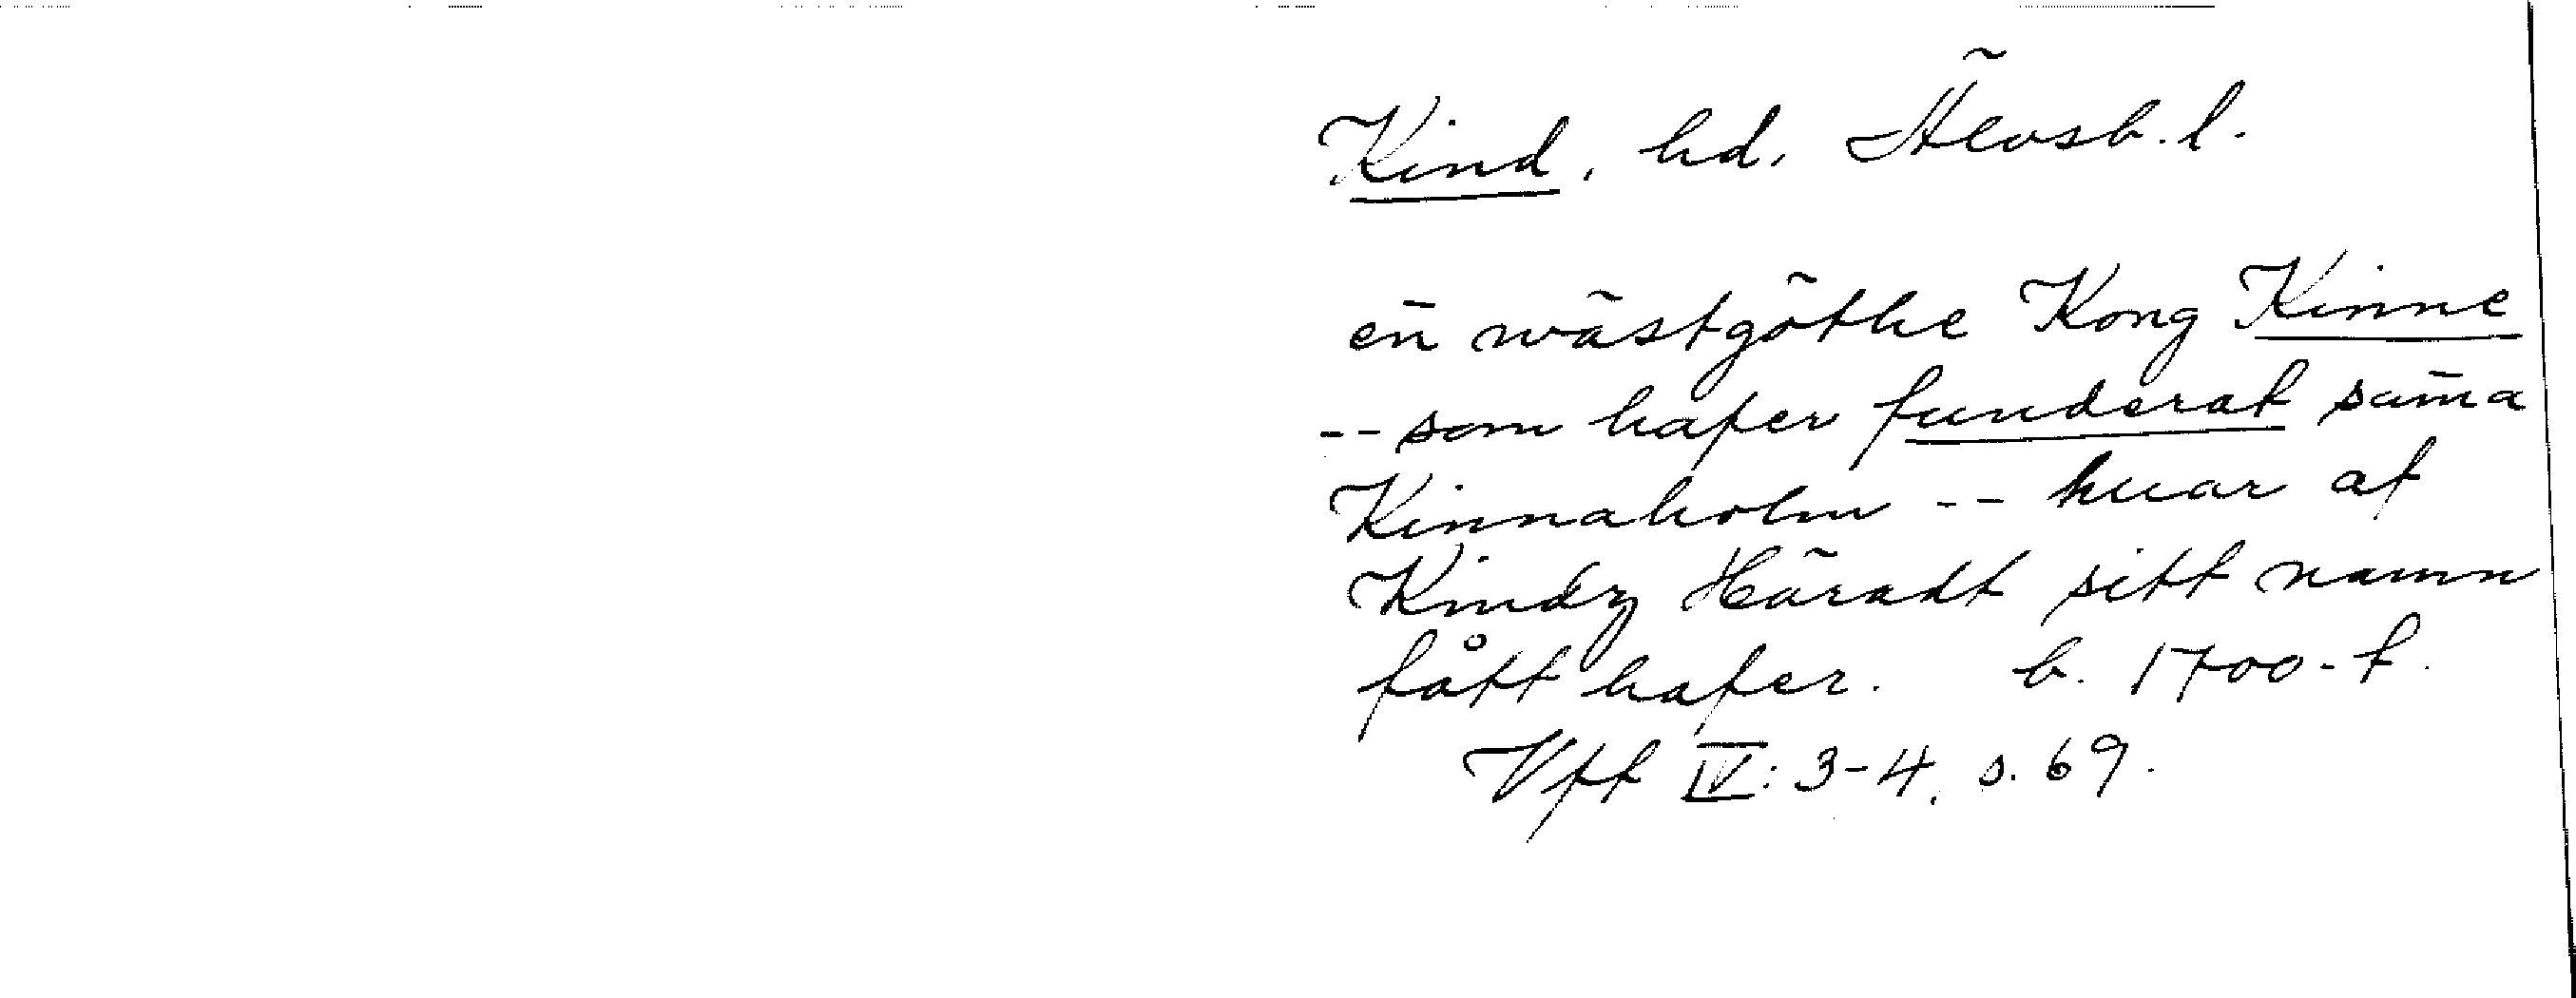 Kind, hd, Älvsb. l.
en̄ wästgöthe Kong Kinne
-- som hafer funderat sam̄a
Kinnaholm -- huar af
Kindz Häradt sitt namn
fått hafer. b. 1700-t.
Vft IV: 3-4, s. 69.